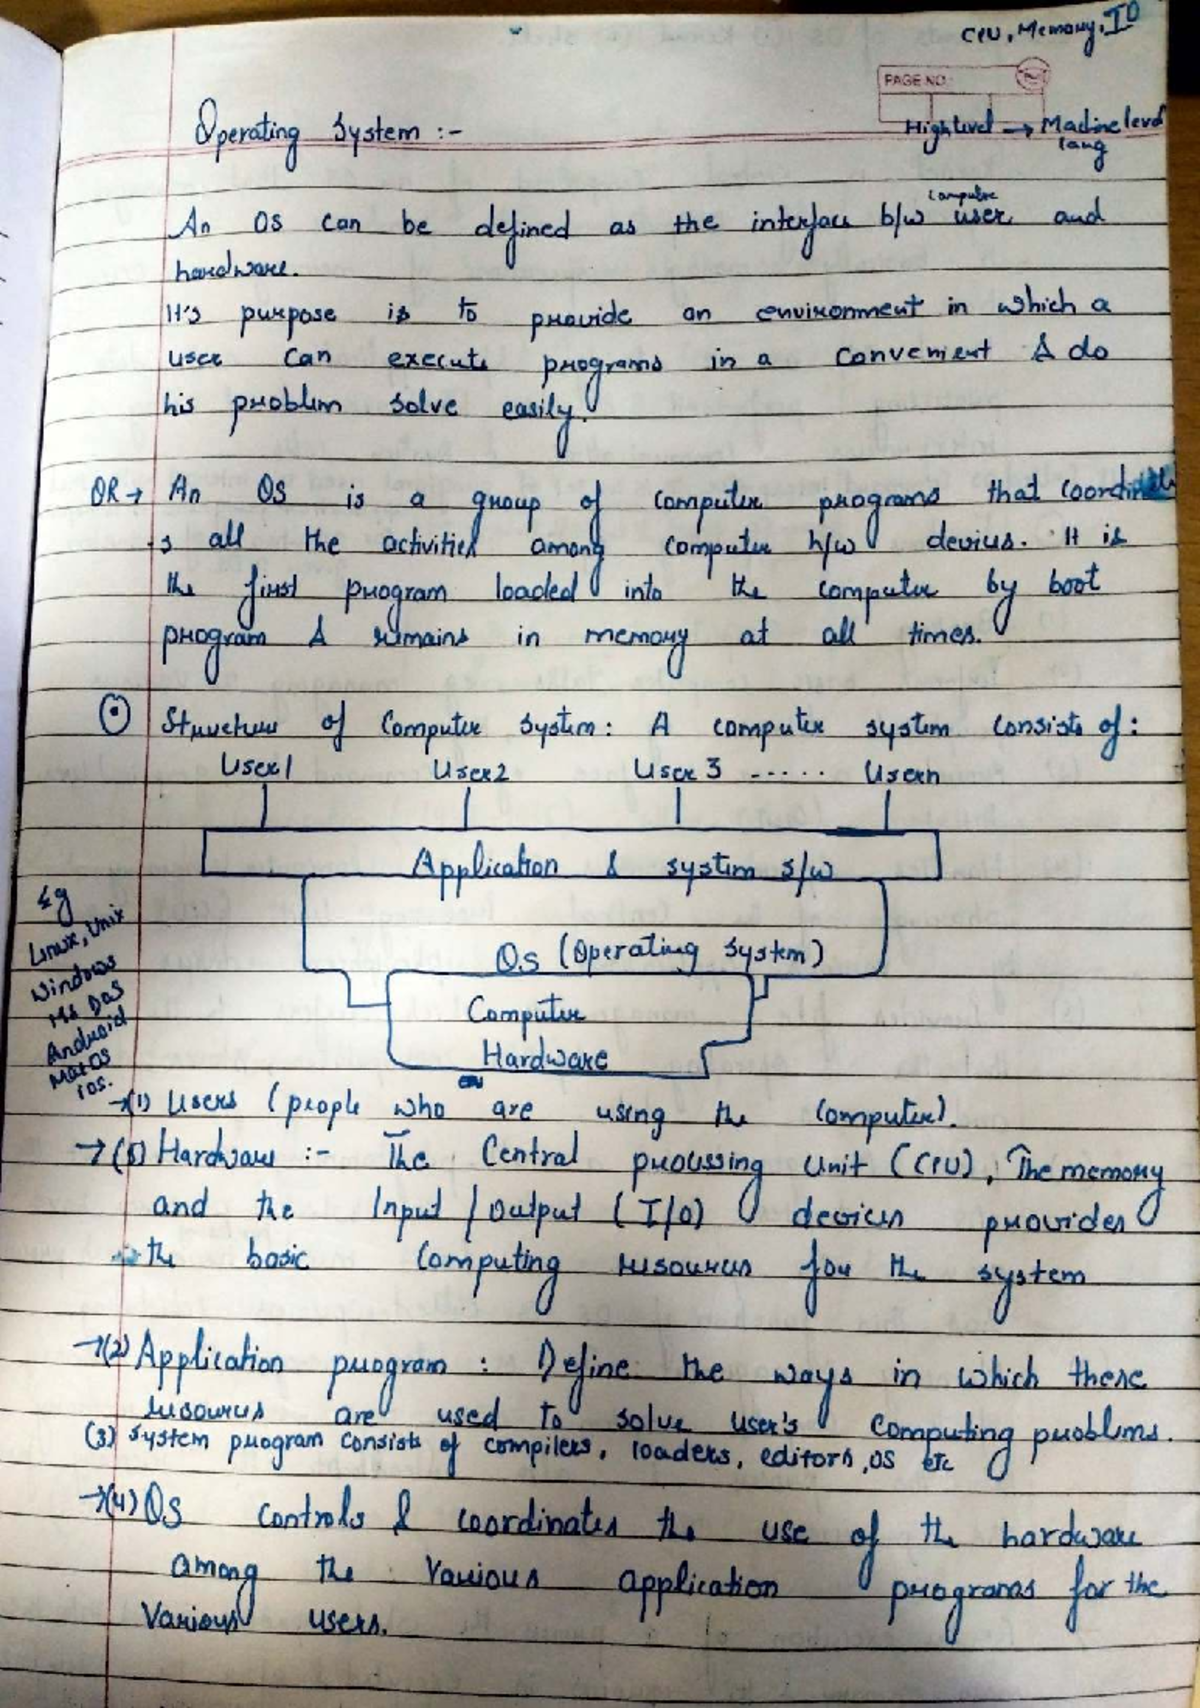 CPU, Memory, IO
PAGE NO.
High level → Machine level
lang
Operating System :-
computer
An OS can be defined as the interface b/w user and
hardware.
It's purpose is to provide an environment in which a
user can execute programs in a convenient & do
his problem solve easily.
OR → An OS is a group of computer programs that coordinate
s all the activities among computer h/w devices. It is
the first program loaded into the computer by boot
program & remains in memory at all times.
Structure of Computer System: A computer system consists of:
User1 User2 User3 ...... Usern
Application & system s/w
OS (Operating System)
Computer
Hardware
Eg
Linux, Unix
Windows
Ms Dos
Android
MacOS
ios.
→(1) Users (people who are using the computer).
→(5) Hardware :- The Central processing Unit (CPU), The memory
and the Input / Output (I/O) devices provides
the basic computing resources for the system
→(2) Application program : Define the ways in which these
resources are used to solve user's computing problems.
(3) System program consists of compilers, loaders, editors, OS etc
→(4) OS controls & coordinates the use of the hardware
among the various application programs for the
various users.